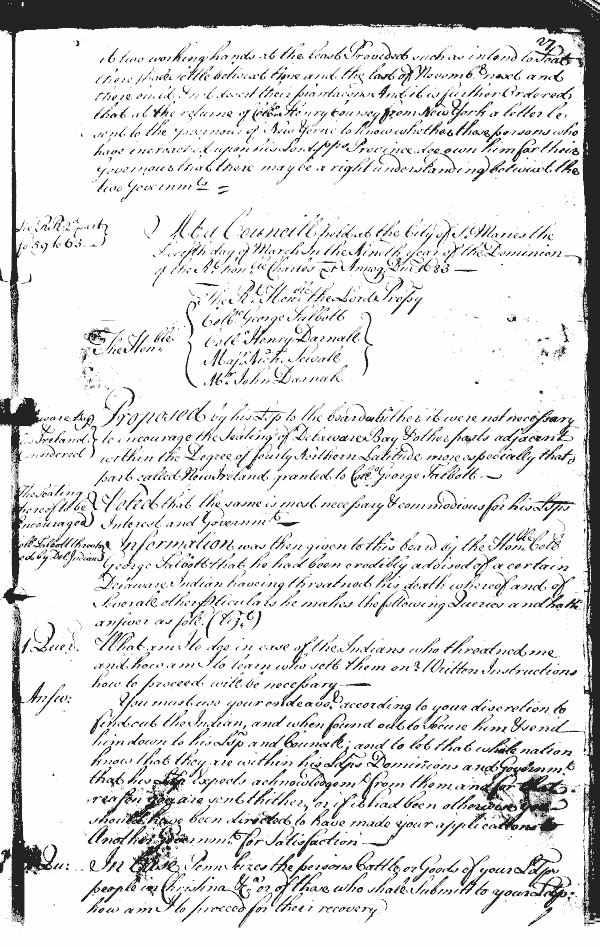 27
it two working hands at the least Provided such as intend to Seat
there shall settle betwixt time and the last of Novembr next and
that at the returne of Coll Henry Coursey from New York a letter be
sent to the governour of New Yorke to know whether those persons who
have incroached upon his Lordpps Province doe own him for their
Governour that there may be a right understanding betwixt the
two Governmts =
At a Councill held at the City of St Maries the
day of March In the Ninth year of the Dominion
of the Rt honble Charles &c Annoq Dni 1683 —
fo 59 to 63.
The Rt Honble the Lord Propry
The Honble
Coll George Talbott
Coll Henry Darnall
Majr Nich: Sewall
Mr John Darnall
Proposed by his Lsp to the board whither it were not necessary
to encourage the Seating of Delaware Bay & other parts adjacent
within the Degree of fourty Northern Latitude more especially that
part called New Ireland granted to Coll George Talbott —
Delaware Bay
& Ireland
considered
Voted that the same is most necessary & commodious for his Lsps
Interest and Governmt —
The Seating
thereof to be
Encouraged
Information was then given to this board by the Honble Coll
George Talbott that he had been credibly advised of a certain
Delaware Indian haveing threatned his death whereof and of
Severall other pticulars he makes the following Queries and hath
answer as foll (Vizt)
Coll Talbott threatn
ed by Del: Indian
1. Que:
What am I to doe in case of the Indians who threatned me
and how am I to learn who sett them on? Written Instructions
how to proceed will be necessary —
Answ:
You must use your endeavr according to your discretion to
find out the Indian, and when found out to secure him & send
him down to his Lsp and Councill; and to let that whole nation
know that they are within his Ldps Dominions and Governmt
that his Lsp Expects acknowledgemt from them and for that
reason you are sent thither, or if it had been otherwise you
should have been directed to have made your applications to
Another Governmt for Satisfaction —
Qu:
In Case Penn Seizes the persons Cattle or Goods of your Ldps
people in Christina &ca or of those who shall Submitt to your Ldp:
how am I to proceed for their recovery